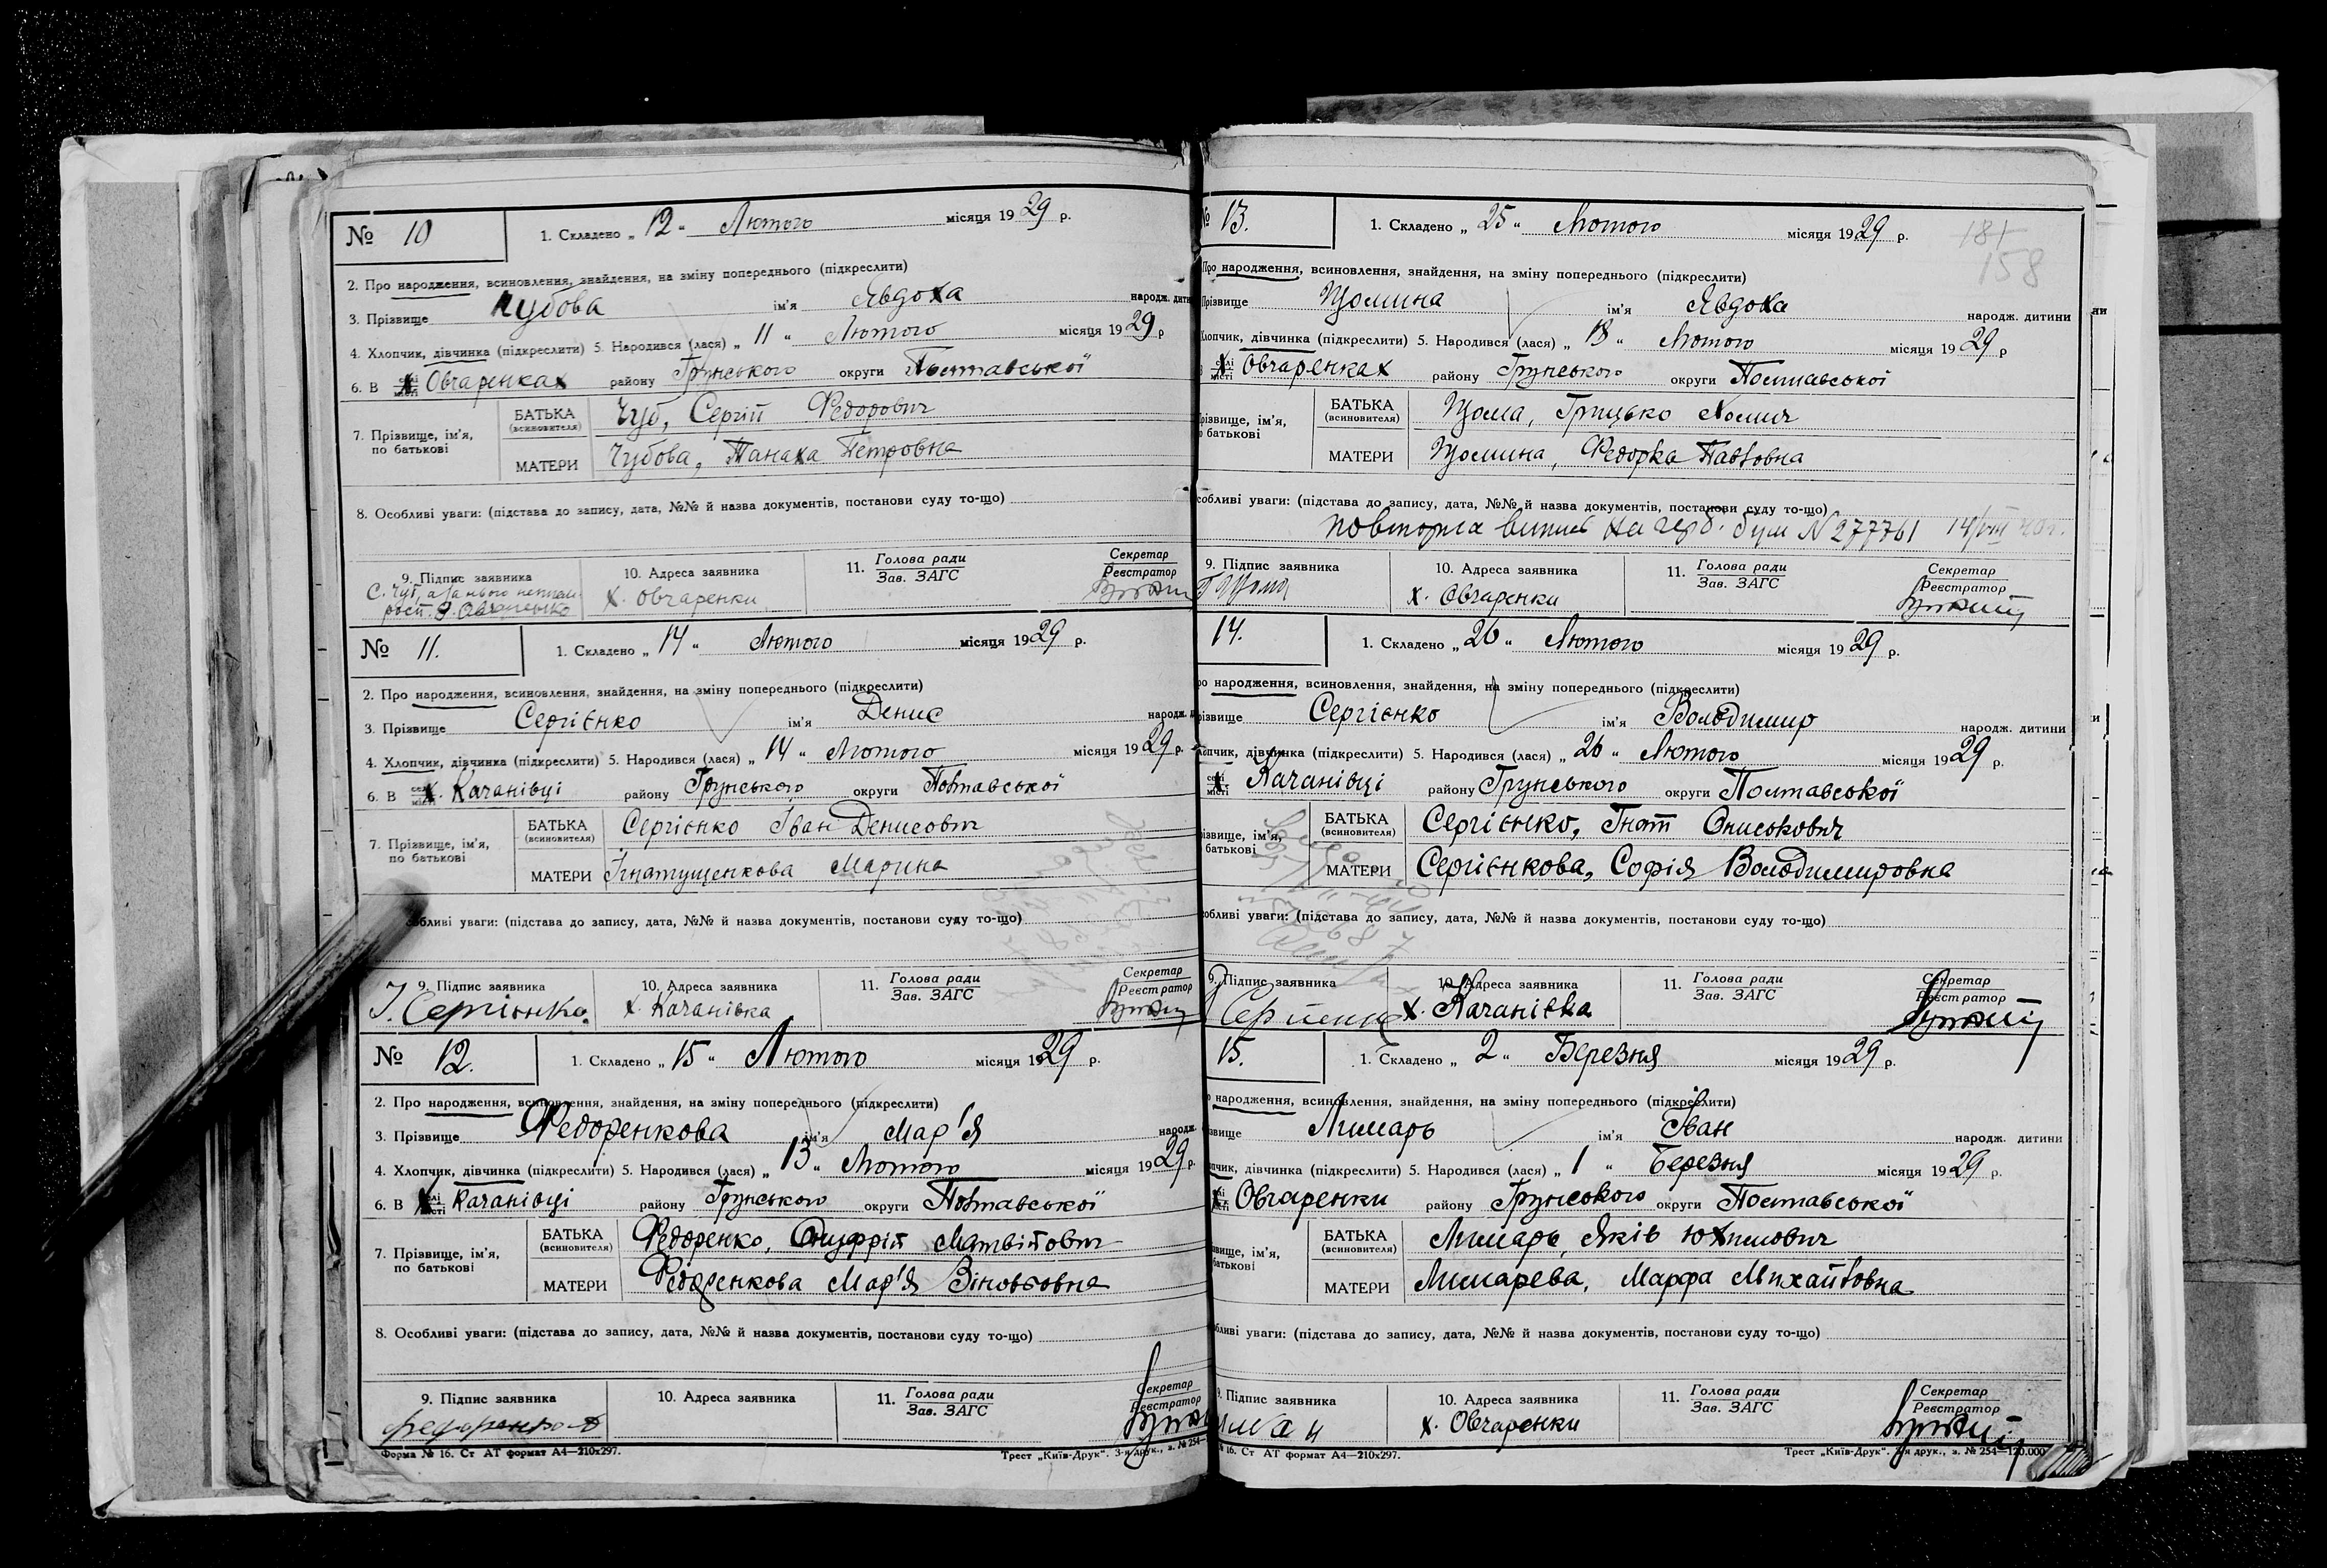 № 10
1. Складено „ 12 “ Лютого місяця 1929 р.
2. Про народження, всиновлення, знайдення, на зміну попереднього (підкреслити)
3. Прізвище Чубова ім'я Явдоха народж. дити
4. Хлопчик, дівчинка (підкреслити) 5. Народився (лася) „ 11 “ Лютого місяця 1929 р
6. В селі місті х Овчаренках району Грунського округи Полтавської
7. Прізвище, ім'я, по батькові
БАТЬКА (всиновителя) Чуб, Сергій Федорович
МАТЕРИ Чубова, Танаха Петровна
8. Особливі уваги: (підстава до запису, дата, №№ й назва документів, постанови суду то-що)
9. Підпис заявника
С. Чуб, а за нього неписьм.
10. Адреса заявника
х. Овчаренки
11. Голова ради
Зав. ЗАГС
Секретар
Реєстратор
№ 11.
1. Складено „ 14 “ Лютого місяця 1929 р.
2. Про народження, всиновлення, знайдення, на зміну попереднього (підкреслити)
3. Прізвище Сергієнко ім'я Денис народж.
4. Хлопчик, дівчинка (підкреслити) 5. Народився (лася) „ 14 “ Лютого місяця 1929 р.
6. В селі місті х. Качанівці району Грунського округи Полтавської
7. Прізвище, ім'я, по батькові
БАТЬКА (всиновителя) Сергієнко Іван Денисович
МАТЕРИ Ігнатущенкова Марина
обливі уваги: (підстава до запису, дата, №№ й назва документів, постанови суду то-що)
9. Підпис заявника
І. Сергієнко.
10. Адреса заявника
х. Качанівка
11. Голова ради
Зав. ЗАГС
Секретар
Реєстратор
№ 12.
1. Складено „ 15 “ Лютого місяця 1929 р.
2. Про народження, всиновлення, знайдення, на зміну попереднього (підкреслити)
3. Прізвище Федоренкова ім'я Мар'я народж.
4. Хлопчик, дівчинка (підкреслити) 5. Народився (лася) „ 13 “ Лютого місяця 1929 р.
6. В селі місті х Качанівці району Грунського округи Полтавської
7. Прізвище, ім'я, по батькові
БАТЬКА (всиновителя) Федоренко, Онуфрій Матвійович
МАТЕРИ Федоренкова Мар'я Зіновєовна
8. Особливі уваги: (підстава до запису, дата, №№ й назва документів, постанови суду то-що)
9. Підпис заявника
10. Адреса заявника
11. Голова ради
Зав. ЗАГС
Секретар
Реєстратор
Форма № 16. Ст АТ формат А4—210х297.
Трест „Київ-Друк“. 3-я друк., з. № 254—
№ 13.
1. Складено „ 25 “ Лютого місяця 1929 р.
181
158
Про народження, всиновлення, знайдення, на зміну попереднього (підкреслити)
Прізвище Цомина ім'я Явдоха народж. дитини
Хлопчик, дівчинка (підкреслити) 5. Народився (лася) „ 18 “ Лютого місяця 1929 р
селі місті х Овчаренках району Грунського округи Полтавської
різвище, ім'я, о батькові
БАТЬКА (всиновителя) Цома, Грицько Хомич
МАТЕРИ Цомина, Федорка Павловна
собливі уваги: (підстава до запису, дата, №№ й назва документів, постанови суду то-що)
повторна випис на герб. бум N 277761 14/VIII 40 г.
9. Підпис заявника
Г Цома
10. Адреса заявника
х. Овчаренки
11. Голова ради
Зав. ЗАГС
Секретар
Реєстратор
14.
1. Складено „ 26 “ Лютого місяця 1929 р.
ро народження, всиновлення, знайдення, на зміну попереднього (підкреслити)
різвище Сергієнко ім'я Володимир народж. дитини
лопчик, дівчинка (підкреслити) 5. Народився (лася) „ 26 “ Лютого місяця 1929 р.
селі місті х. Качанівці району Грунського округи Полтавської
ізвище, ім'я, батькові
БАТЬКА (всиновителя) Сергієнко, Гнат Ониськович
МАТЕРИ Сергієнкова, Софія Володимировна
обливі уваги: (підстава до запису, дата, №№ й назва документів, постанови суду то-що)
9. Підпис заявника
10. Адреса заявника
х. Качанівка
11. Голова ради
Зав. ЗАГС
Секретар
Реєстратор
15.
1. Складено „ 2 “ Березня місяця 1929 р.
о народження, всиновлення, знайдення, на зміну попереднього (підкреслити)
звище Лимарь ім'я Іван народж. дитини
пчик, дівчинка (підкреслити) 5. Народився (лася) „ 1 “ Березня місяця 1929 р.
х Овчаренки району Грунського округи Полтавської
звище, ім'я, батькові
БАТЬКА (всиновителя) Лимарь, Яків Юхимович
МАТЕРИ Лимарева, Марфа Михайловна
бливі уваги: (підстава до запису, дата, №№ й назва документів, постанови суду то-що)
9. Підпис заявника
10. Адреса заявника
х. Овчаренки
11. Голова ради
Зав. ЗАГС
Секретар
Реєстратор
№ 16. Ст АТ формат А4—210х297.
Трест „Київ-Друк“. 3-я друк., з. № 254—120.000